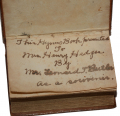 This Hymn Book presented
To
Mrs. Henry Hedges
By
Mr. Leonard
as a souvenir